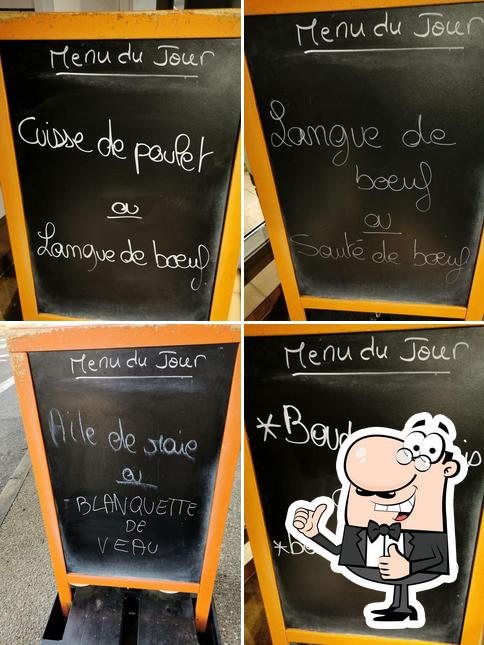 Menu du Jour
Cuisse de poulet
ou
Langue de bœuf
Menu du Jour
Langue de
bœuf
ou
Sauté de bœuf
Menu du Jour
Aile de raie
ou
BLANQUETTE
DE
VEAU
Menu du Jour